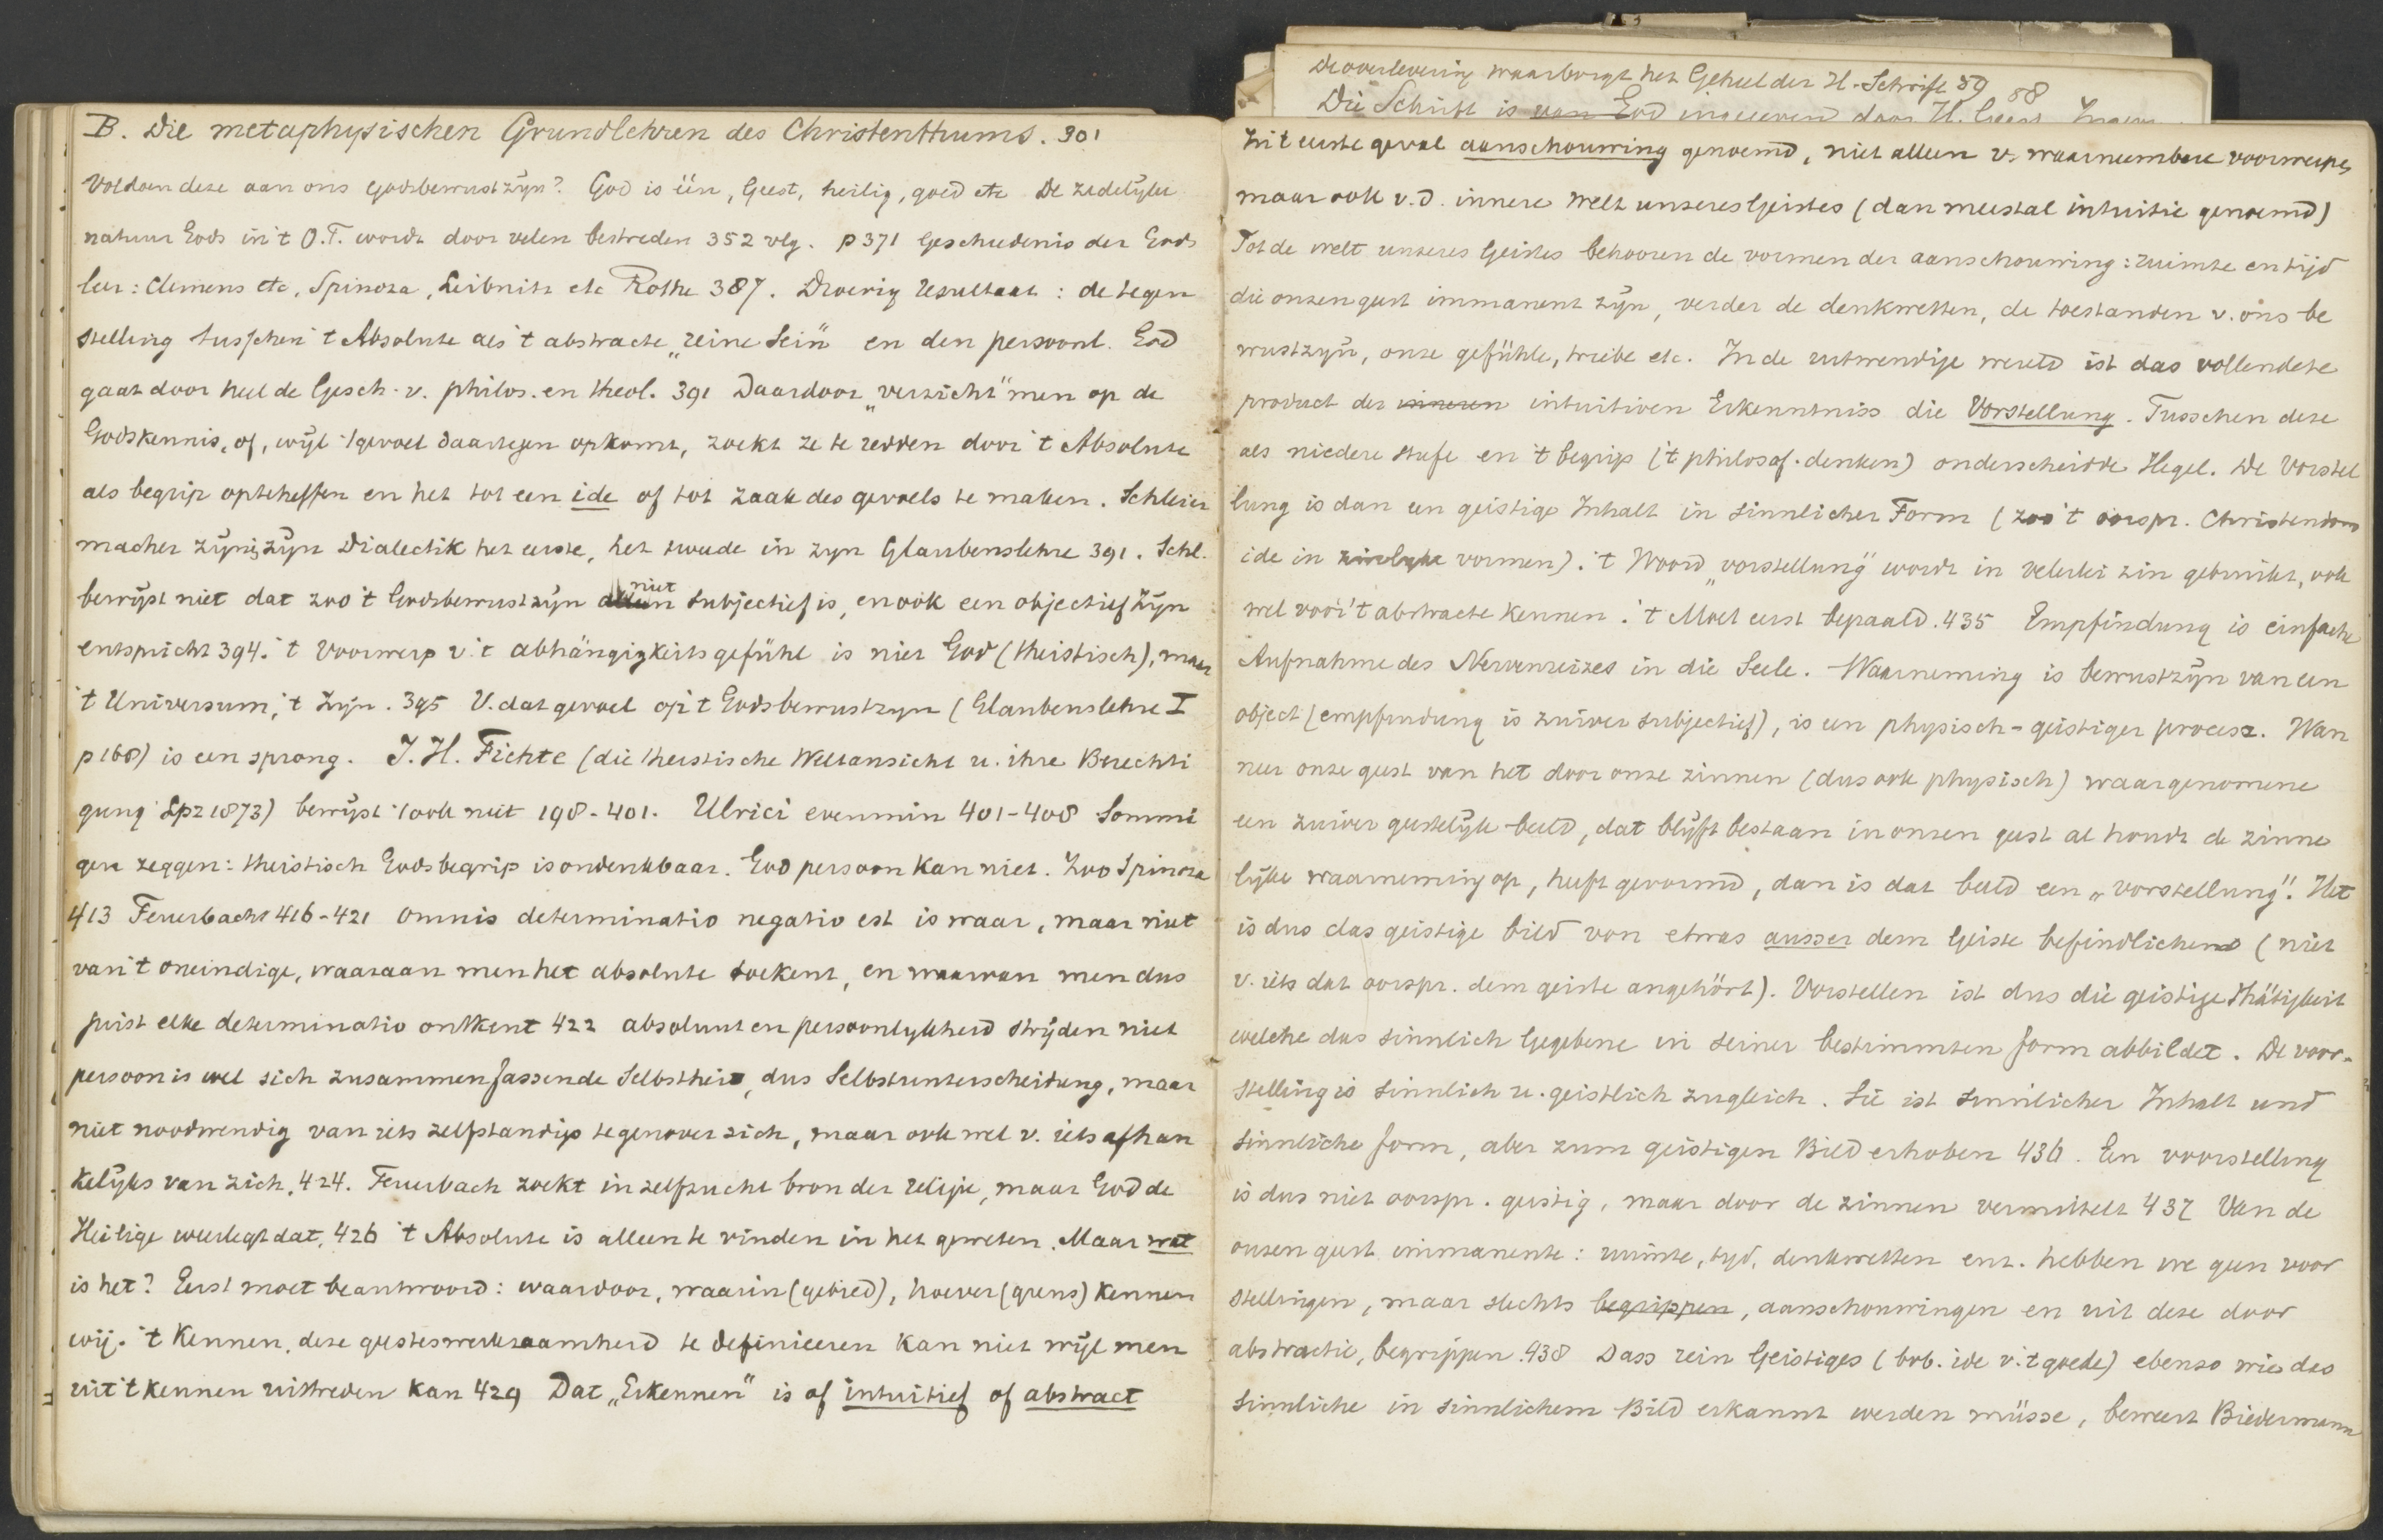 B. Die metaphysischen Grundlehren des Christenthums. 301
Voldoen deze aan ons godsbewustzijn? God is één, Geest, heilig, goed etc De zedelijke
natuur Gods in 't O.T. wordt door velen bestreden 352 vlg. p 371 Geschiedenis der Gods
leer: Clemens etc, Spinoza, Leibnitz etc Rothe 387. Droevig resultaat: de tegen
stelling tusschen 't Absolute als 't abstracte „reine Sein" en den persoonl. God
gaat door heel de Gesch. v. philos. en theol. 391 Daardoor „verzicht" men op de
Godskennis, of, wijl 't gevoel daartegen opkomt, zoekt ze te redden door 't Absolute
als begrip opteheffen en het tot een ide of tot zaak des gevoels te maken. Schleier
macher zijn zijn Dialectik het eerste, het tweede in zijn Glaubenslehre 391. Schl.
bewijst niet dat zoo 't Godsbewustzijn alleen niet subjectief is, en ook een objectief Zijn
entspricht 394. 't Voorwerp v. 't abhängigkeitsgefühl is niet God (theistisch), maar
't Universum, 't Zijn. 395 V. dat gevoel op 't Godsbewustzijn (Glaubenslehre I
p 168) is een sprong. J. H. Fichte (die theistische Weltansicht u. ihre Berechti
gung Lpz 1873) bewijst 't ook niet 198-401. Ulrici evenmin 401-408 Sommi
gen zeggen: theistisch Godsbegrip is ondenkbaar. God persoon kan niet. Zoo Spinoza
413 Feuerbach 416-421 omnis determinatio negatio est is waar, maar niet
van 't oneindige, waaraan men het absolute toekent, en waarvan men dus
juist elke determinatio ontkent 422 absoluut en persoonlijkheid strijden niet
persoon is wel sich zusammenfassende Selbstheit, dus Selbstunterscheidung, maar
niet noodwendig van iets zelfstandigs tegenover zich, maar ook wel v. iets afhan
kelijks van zich. 424. Feuerbach zoekt in zelfzucht bron der religie, maar God de
Heilige weerlegt dat, 426 't Absolute is alleen te vinden in het geweten. Maar wat
is het? Eerst moet beantwoord: waardoor, waarin (gebied), hoever (grens) kennen
wij. 't Kennen, deze geesteswerkzaamheid te definieeren kan niet wijl men
uit 't kennen uittreden kan 429 Dat „Erkennen" is of intuitief of abstract
De overlevering waarborgt het Geheel der H. Schrift 59 88
Die Schrift is van God ingegeven door H. Geest
In 't eerste geval aanschouwing genoemd, niet alleen v. waarneembare voorwerpen
maar ook v. d. innere Welt unseres Geistes (dan meestal intuitie genoemd)
Tot de welt unseres Geistes behooren de vormen der aanschouwing: ruimte en tijd
die onzen geest immanent zijn, verder de denkwetten, de toestanden v. ons be
wustzijn, onze gefühle, triebe etc. In de uitwendige wereld ist das vollendete
product der inneren intuitiven Erkenntniss die Vorstellung. Tusschen deze
als niedere Stufe en 't begrip ('t philosof. denken) onderscheidde Hegel. De Vorstel
lung is dan een geistige Inhalt in sinnlicher Form (zoo 't oorspr. Christendom
ide in zinlijke vormen). 't Woord „vorstellung" wordt in velerlei zin gebruikt, ook
wel voor 't abstracte kennen. 't Moet eerst bepaald. 435 Empfindung is einfache
Aufnahme des Nervenreizes in die Seele. Waarneming is bewustzijn van een
object (empfindung is zuiver subjectief), is een physisch-geistiger process. Wan
neer onze geest van het door onze zinnen (dus ook physisch) waargenomene
een zuiver geestelijk beeld, dat blijft bestaan in onzen geest al houdt de zinne
lijke waarneming op, heeft gevormd, dan is dat beeld een „vorstellung". Het
is dus das geistige bild von etwas ausser dem Geiste befindlichend (niet
v. iets dat oorspr. dem geiste angehört). Vorstellen ist dus die geistige Thätigkeit
welche das sinnlich Gegebene in seiner bestimmten form abbildet. De voor-
stelling is sinnlich u. geistlich zugleich. Sie ist sinnlicher Inhalt und
sinnliche form, aber zum geistigen Bild erhoben 436. Een voorstelling
is dus niet oorspr. geestig, maar door de zinnen vermittelt 437 Van de
onzen geest immanente: ruimte, tijd, denkwetten enz. hebben we geen voor
stellingen, maar slechts begrippen, aanschouwingen en uit deze door
abstractie, begrippen. 438 Dass rein Geistiges (bvb. ide v. 't goede) ebenso wie das
sinnliche in sinnlichem Bild erkannt werden müsse, beweert Biedermann